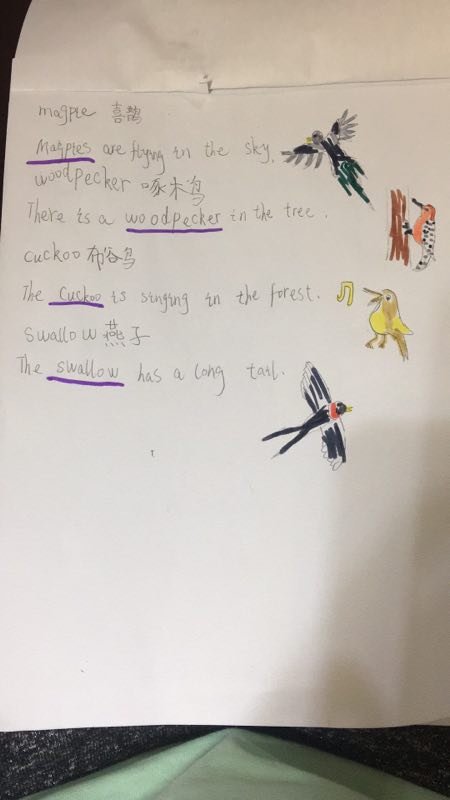 magpie 喜鹊
Magpies are flying in the sky.
woodpecker 啄木鸟
There is a woodpecker in the tree.
cuckoo 布谷鸟
The cuckoo is singing in the forest.
swallow 燕子
The swallow has a long tail.